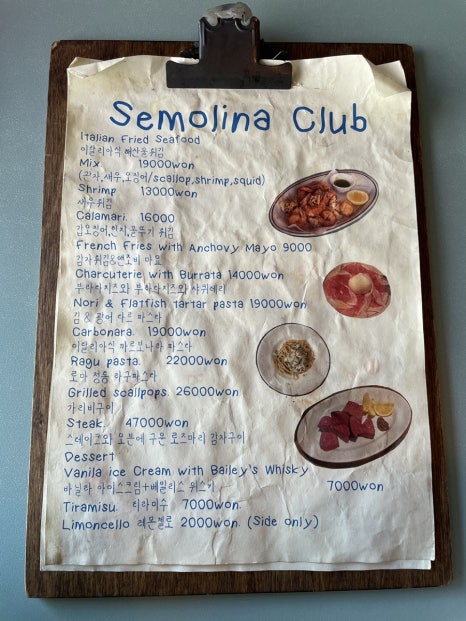 Semolina Club
Italian Fried Seafood
이탈리아식 해산물 튀김
Mix. 19000won
(관자,새우,오징어/scallop,shrimp,squid)
Shrimp 13000won
새우 튀김
Calamari. 16000
갑오징어,한치,꼴뚜기 튀김
French Fries with Anchovy Mayo 9000
감자튀김&앤초비 마요
Charcuterie with Burrata 14000won
부라타치즈와 샤퀴테리
Nori & Flatfish tartar pasta 19000won
김 & 광어 타르 파스타
Carbonara. 19000won
이탈리아식 까르보나라 파스타
Ragu pasta. 22000won
로마 정통 라구파스타
Grilled scallpops. 26000won
가리비구이
Steak. 47000won
스테이크와 오븐에 구운 로즈마리 감자구이
Dessert
Vanila ice Cream with Bailey's Whisky
바닐라 아이스크림+베일리스 위스키 7000won
Tiramisu. 티라미수 7000won.
Limoncello 레몬첼로 2000won. (Side only)